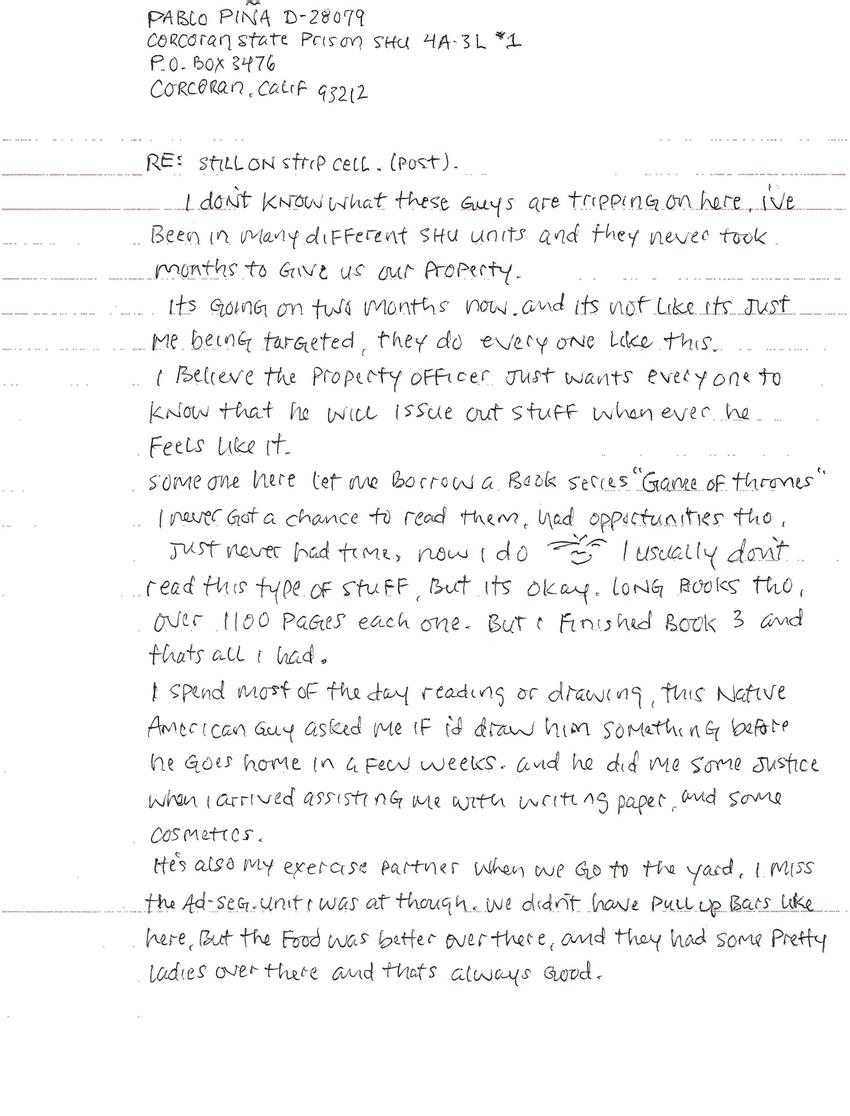 PABLO PIÑA D-28079
CORCORAN State Prison SHU 4A-3L #1
P.O. BOX 3476
CORCORAN, CALIF 93212
RE: STILL ON STRIP CELL. (POST).
I don't KNOW what these Guys are tripping on here, i've
Been in many different SHU units and they never took
months to Give us our Property.
Its Going on two months now. and its not like its Just
me being targeted, they do every one like this.
I Believe the Property officer Just wants every one to
know that he will issue out stuff when ever he
Feels like it.
some one here let me Borrow a Book series "Game of thrones"
I never Got a chance to read them, had opportunities tho,
Just never had time, now i do I usually don't
read this type of stuff, But its okay. LONG Books tho,
over 1100 Pages each one. But i Finished Book 3 and
thats all i had.
I spend most of the day reading or drawing, this Native
American Guy asked me if i'd draw him something before
he Goes home in a Few weeks. and he did me some Justice
when i arrived assisting me with writing paper, and some
cosmetics.
He's also my exercise partner when we Go to the yard, I miss
the Ad-Seg. Unit i was at though. we didn't have Pull up Bars like
here, But the Food was better over there, and they had some Pretty
ladies over there and thats always Good.